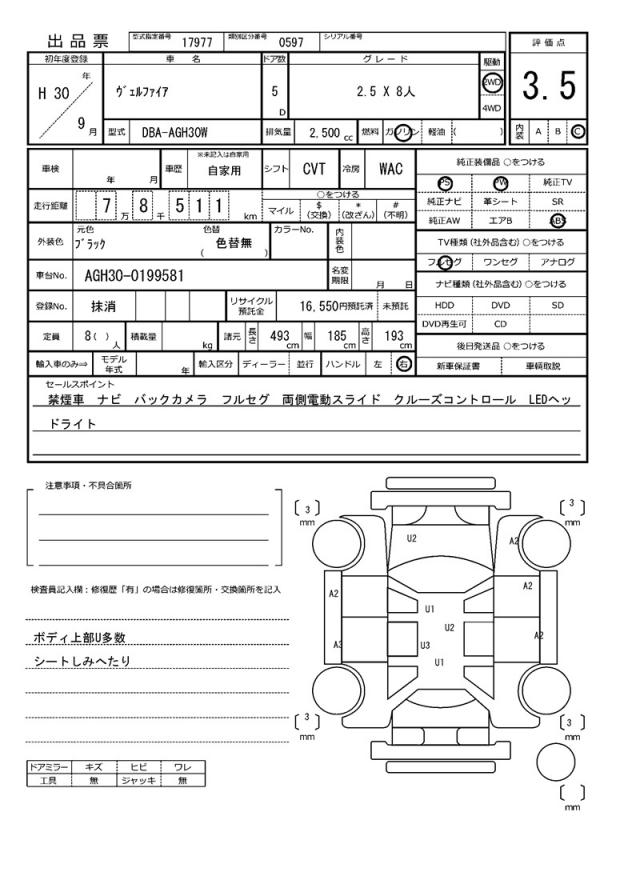 出品票
型式指定番号 17977 類別区分番号 0597 シリアル番号
評価点
3.5
内装 A B C
初年度登録 車名 ドア数 グレード 駆動
H 30 年 9 月
ヴェルファイア 5 D 2.5 X 8人 2WD 4WD
型式 DBA-AGH30W 排気量 2,500 cc 燃料 ガソリン 軽油 ( )
車検 年 月 車歴 ※未記入は自家用 自家用 シフト CVT 冷房 WAC
走行距離 7 万 8 千 5 1 1 km
○をつける
マイル $(交換) *(改ざん) #(不明)
外装色 元色 ブラック 色替 色替無 ( ) カラーNo. 内装色
車台No. AGH30-0199581 名変期限 月 日
登録No. 抹消 リサイクル預託金 16,550円預託済 未預託
定員 8( )人 積載量 kg 諸元 長さ 493 cm 幅 185 cm 高さ 193 cm
輸入車のみ⇒ モデル年式 年 輸入区分 ディーラー 並行 ハンドル 左 右
純正装備品 ○をつける
PS PW 純正TV
純正ナビ 革シート SR
純正AW エアB ABS
TV種類 (社外品含む) ○をつける
フルセグ ワンセグ アナログ
ナビ種類 (社外品含む) ○をつける
HDD DVD SD
DVD再生可 CD
後日発送品 ○をつける
新車保証書 車輌取説
セールスポイント
禁煙車 ナビ バックカメラ フルセグ 両側電動スライド クルーズコントロール LEDヘッ
ドライト
注意事項・不具合箇所
検査員記入欄：修復歴「有」の場合は修復箇所・交換箇所を記入
ボディ上部U多数
シートしみへたり
ドアミラー キズ ヒビ ワレ
工具 無 ジャッキ 無
3 mm
3 mm
U2
A2
A2
A2
U1
U2
A3
U3
A2
U1
3 mm
3 mm
mm